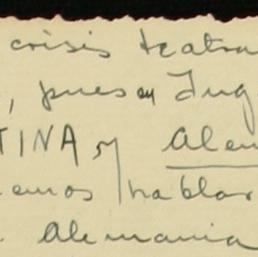 crisis teatra
, pues en Ing
TINA y Alem
emos hablar
. Alemania